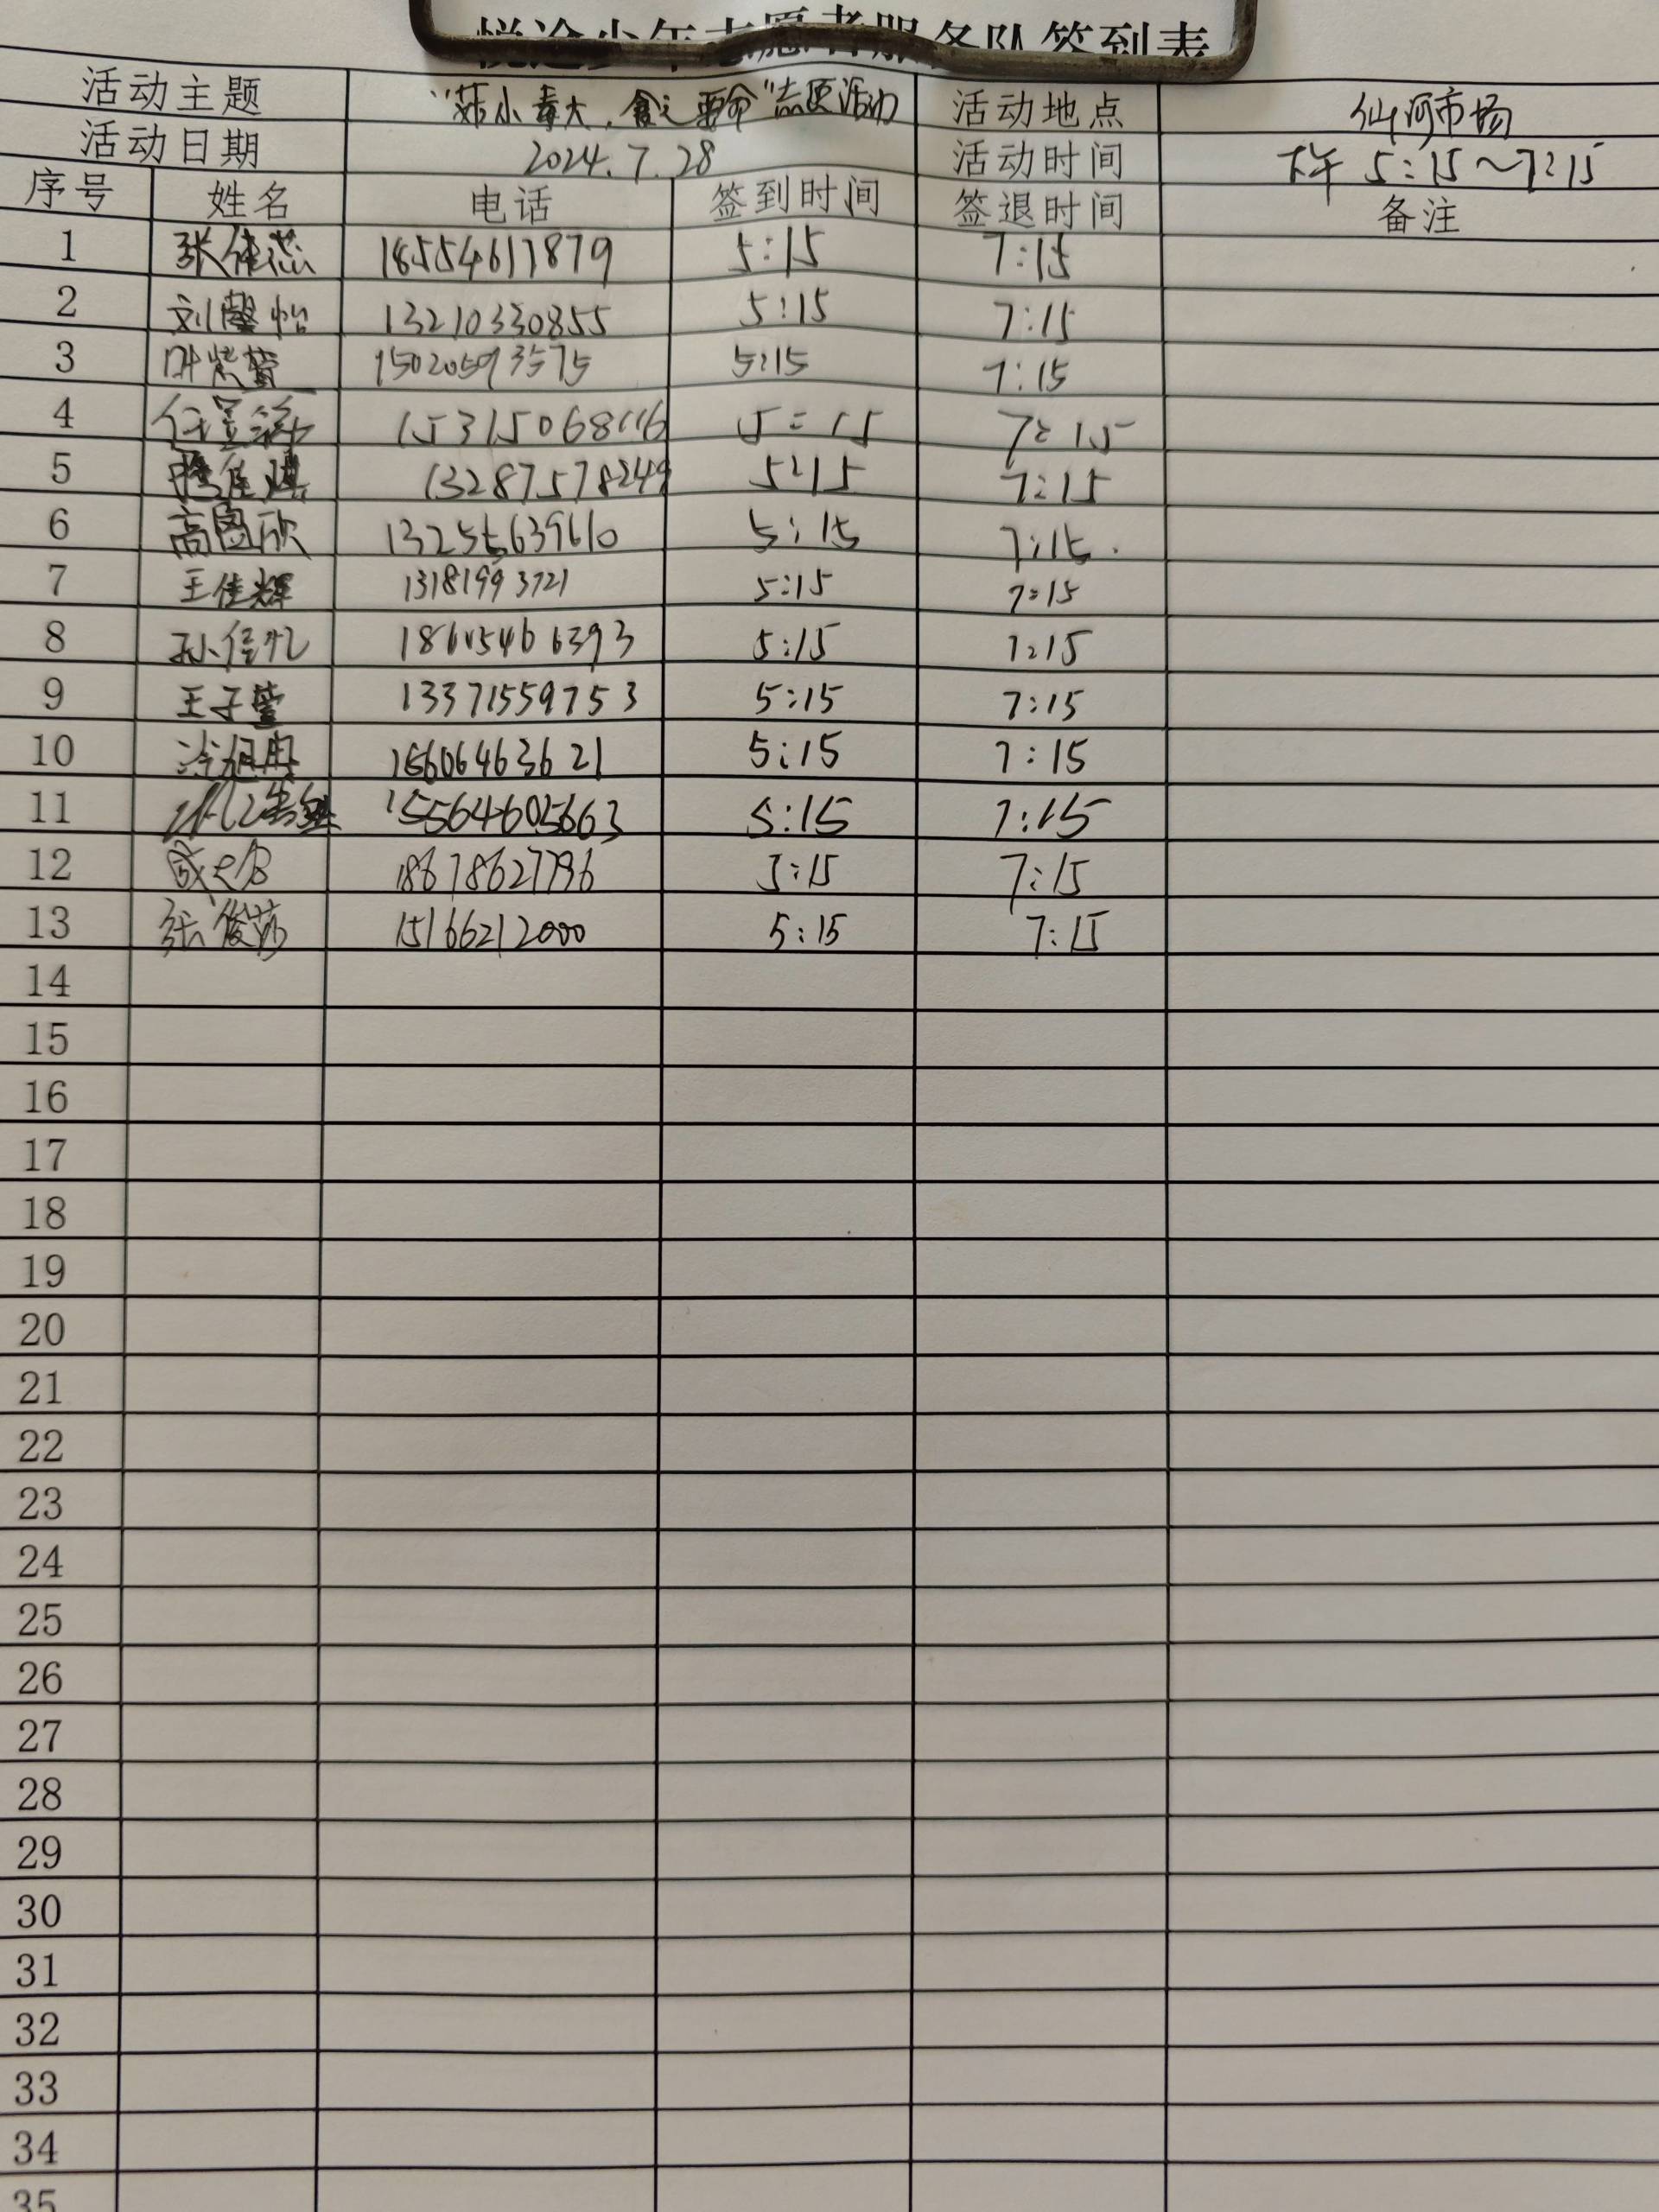 少年志愿者服务队签到表
活动主题 "菇小毒大,食之要命"志愿活动 活动地点 仙河市场
活动日期 2024.7.28 活动时间 下午 5:15~7:15
序号 姓名 电话 签到时间 签退时间 备注
1 张佳蕊 18554611879 5:15 7:15
2 刘馨怡 13210330855 5:15 7:15
3 15020593575 5:15 7:15
4 5:15 7:15
5 13287578249 5:15 7:15
6 高图欣 13255639610 5:15 7:15
7 王佳辉 13181993721 5:15 7:15
8 5:15 7:15
9 王子萱 13371559753 5:15 7:15
10 15606463621 5:15 7:15
11 15564605663 5:15 7:15
12 18678627796 5:15 7:15
13 张俊莎 15166212000 5:15 7:15
14
15
16
17
18
19
20
21
22
23
24
25
26
27
28
29
30
31
32
33
34
35